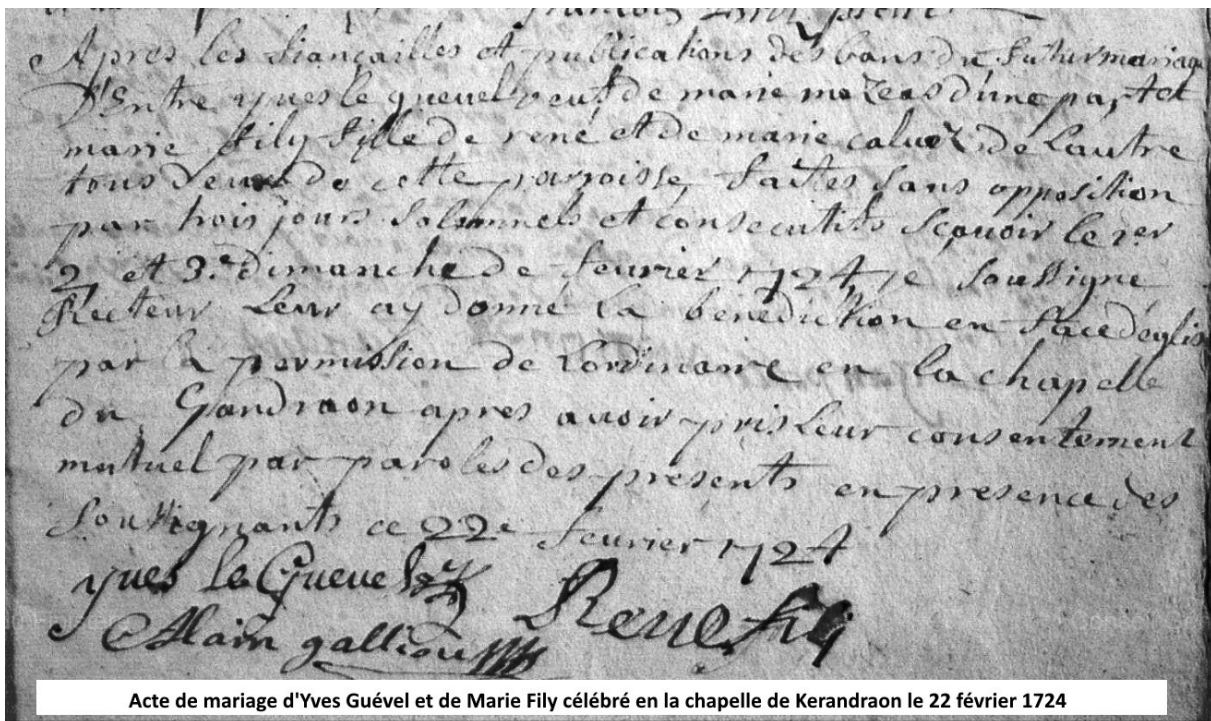 Apres les fiançailles et publications des bans du futur mariage
D'Entre yves le gueuel veuf de marie mazeas d'une part et
marie fily fille de rené et de marie caluez de lautre
tous deux de cette parroisse, faites sans opposition
par trois jours solemnels et consecutifs sçauoir le 1er
2 et 3e dimanche de feurier 1724, je soussigne
Recteur Leur ay donné La benediction en face d'eglise
par la permission de Lordinaire en la chapelle
du Gandraon apres auoir pris Leur consentement
mutuel par paroles des presents en presence des
soussignants ce 22e feurier 1724
yues le Gueuel
Rene fili
Alain galliou
Acte de mariage d'Yves Guével et de Marie Fily célébré en la chapelle de Kerandraon le 22 février 1724